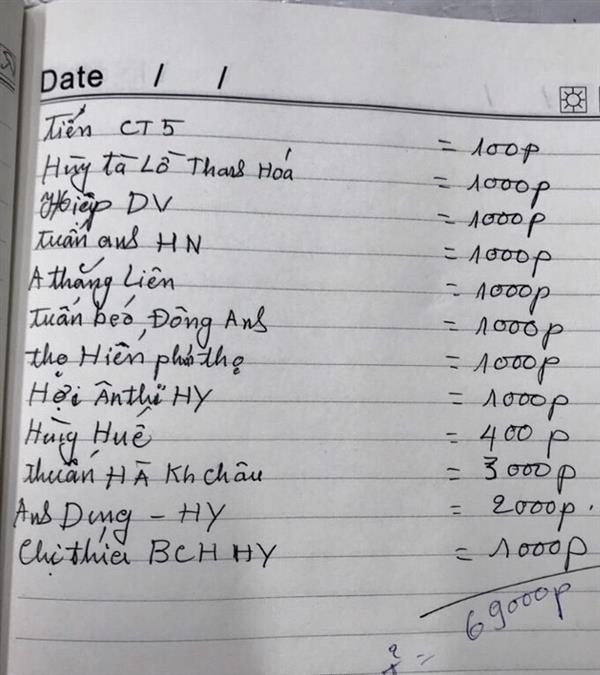 Date / /
Tiến CT5 = 100p
Hùng Tà Lồ Thanh Hóa = 1000p
Hiệp DV = 1000p
Tuấn anh HN = 1000p
A thắng Liên = 1000p
Tuấn béo, Đông Anh = 1000p
thọ Hiền phú thọ = 1000p
Hợi Ân thi HY = 1000p
Hùng Huế = 400p
thuấn HÀ Kh châu = 3000p
Anh Dụng - HY = 2000p.
Chị BCH HY = 1000p
= 69000p